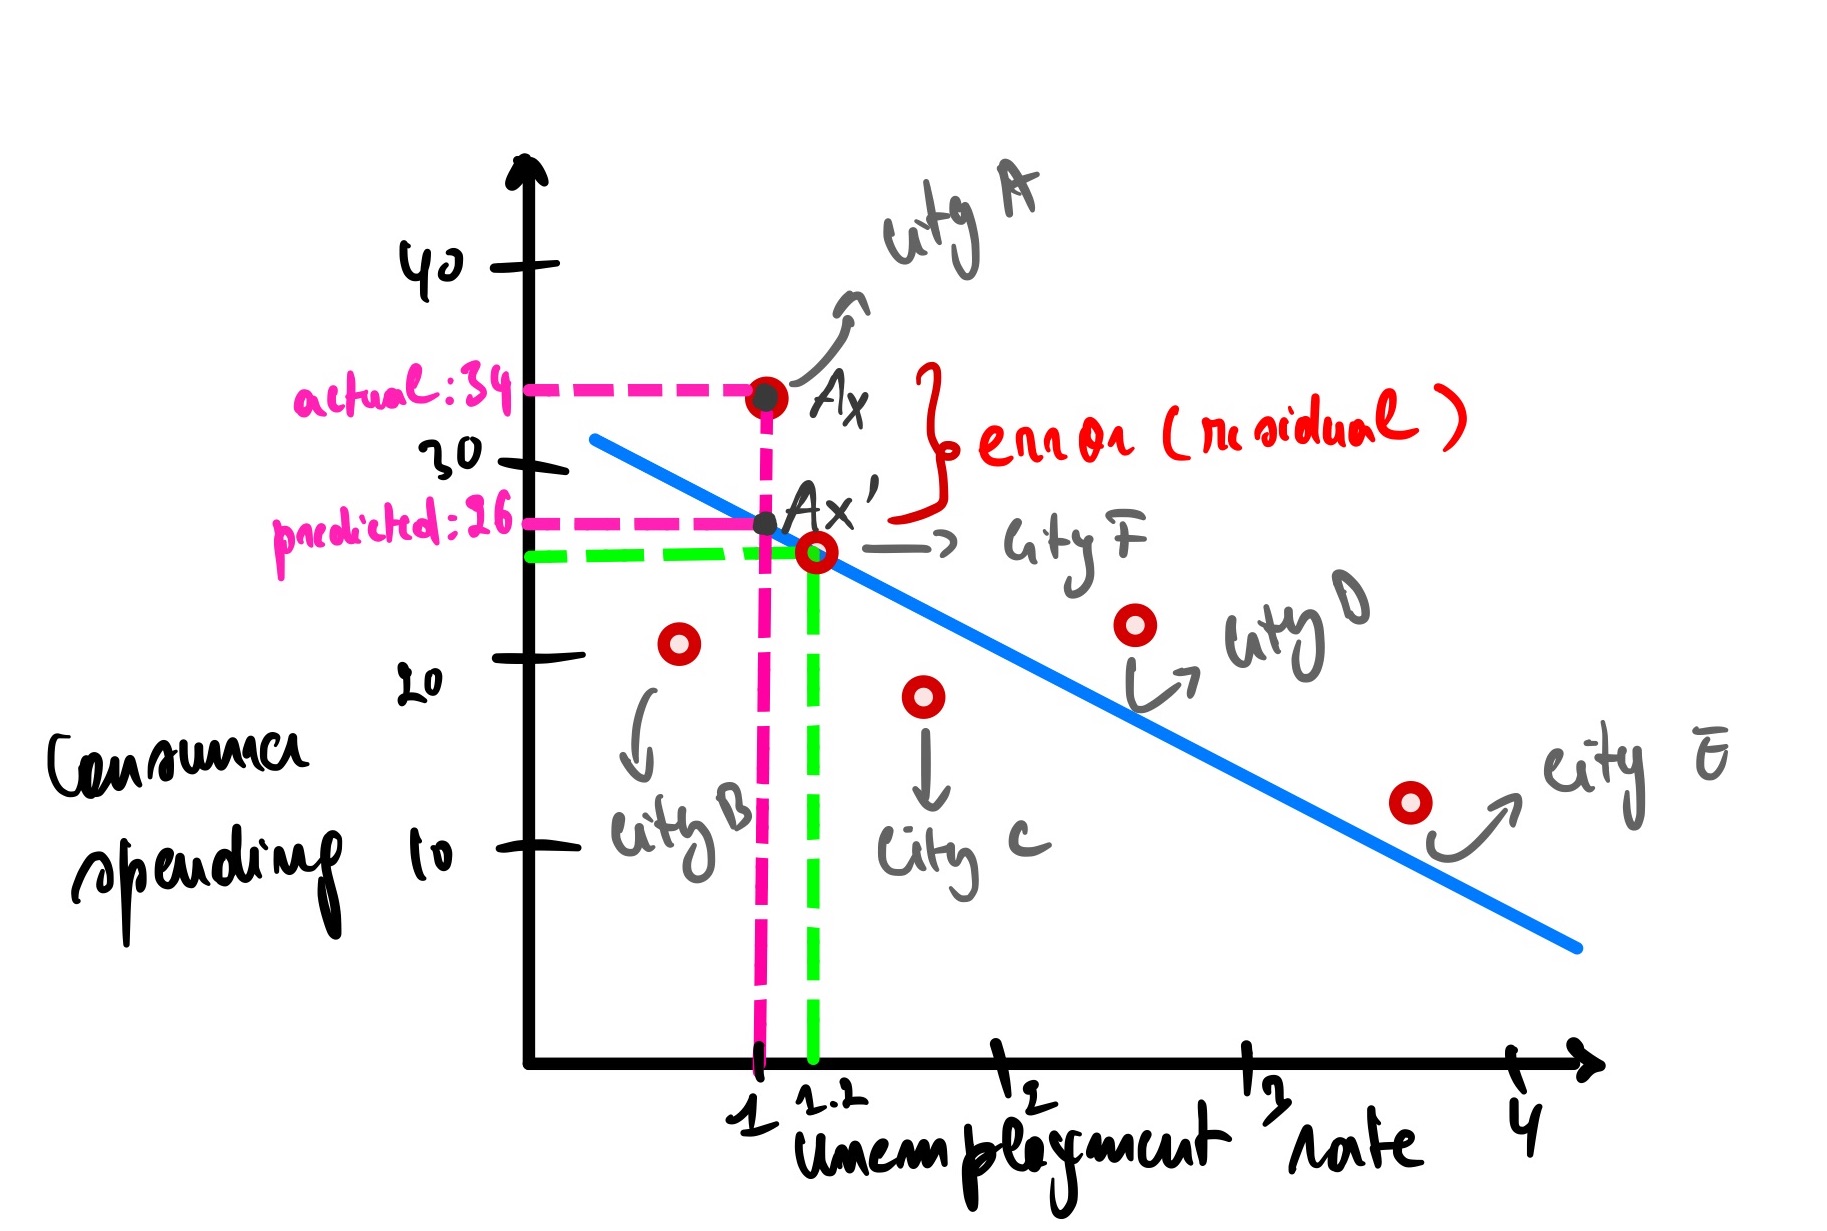 city A
40
actual: 34
Ax
error (residual)
30
Ax'
predicted: 26
city F
city D
20
city E
Consumer
spending
city B
city C
10
1
1.2
2
3
4
unemployment rate